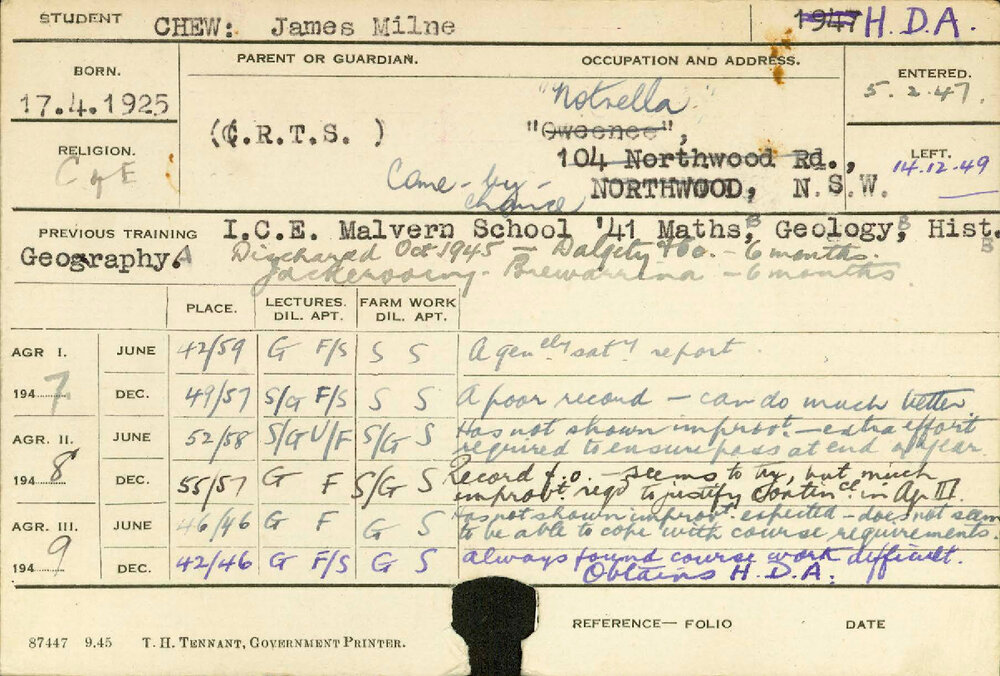 STUDENT CHEW: James Milne 1947 H.D.A.
BORN. PARENT OR GUARDIAN. OCCUPATION AND ADDRESS. ENTERED.
17.4.1925 "Notrella" 5.2.47.
(C.R.T.S. ) "Oweenee",
RELIGION. 104 Northwood Rd., LEFT.
C of E Come-by-chance NORTHWOOD, N.S.W. 14.12.49
PREVIOUS TRAINING I.C.E. Malvern School '41 Maths, B Geology, B Hist. B
Geography. A Discharged Oct 1945 — Dalgety & Co. — 6 months.
Jackerooing - Brewarrina — 6 months.
PLACE. LECTURES. DIL. APT. FARM WORK DIL. APT.
AGR I. JUNE 42/59 G F/S S S A genelly saty report.
1947 DEC. 49/57 S/G F/S S S A poor record — can do much better
AGR. II. JUNE 52/58 S/G U/F S/G S Has not shown improvt. — extra effort
required to ensure pass at end of year.
1948 DEC. 55/57 G F S/G S Record f.o. — seems to try, but much
improvt. reqd to justify contince in Agr III.
AGR. III. JUNE 46/46 G F G S Has not shown improvt. expected — does not seem
to be able to cope with course requirements.
1949 DEC. 42/46 G F/S G S Always found course work difficult.
Obtains H.D.A.
REFERENCE— FOLIO DATE
87447 9.45 T. H. TENNANT, GOVERNMENT PRINTER.